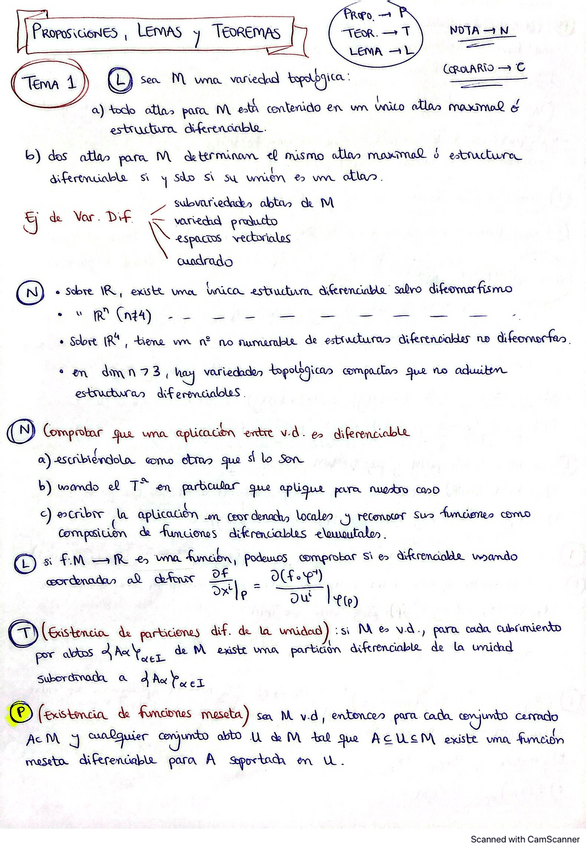 PROPOSICIONES, LEMAS y TEOREMAS
PROPO. → P
TEOR. → T
LEMA → L
NOTA → N
COROLARIO → C
TEMA 1
(L) sea M una variedad topológica:
a) todo atlas para M está contenido en un único atlas maximal ó
estructura diferenciable.
b) dos atlas para M determinan el mismo atlas maximal ó estructura
diferenciable si y sólo si su unión es un atlas.
Ej de Var. Dif.
subvariedades abtas de M
variedad producto
espacios vectoriales
cuadrado
(N) • sobre ℝ, existe una única estructura diferenciable salvo difeomorfismo
• " ℝⁿ (n≠4) - - - - - - - - - - -
• Sobre ℝ⁴, tiene un nº no numerable de estructuras diferenciables no difeomorfas.
• en dim n > 3, hay variedades topológicas compactas que no admiten
estructuras diferenciables.
(N) Comprobar que una aplicación entre v.d. es diferenciable
a) escribiéndola como otras que sí lo son
b) usando el Tª en particular que aplique para nuestro caso
c) escribir la aplicación en coordenadas locales y reconocer sus funciones como
composición de funciones diferenciables elementales.
(L) si f: M → ℝ es una función, podemos comprobar si es diferenciable usando
coordenadas al definir ∂f/∂xⁱ|p = ∂(f∘φ⁻¹)/∂uⁱ|φ(p)
(T) (Existencia de particiones dif. de la unidad): si M es v.d., para cada cubrimiento
por abtos {Aα}α∈I de M existe una partición diferenciable de la unidad
subordinada a {Aα}α∈I
(P) (Existencia de funciones meseta) sea M v.d, entonces para cada conjunto cerrado
A⊂M y cualquier conjunto abto U de M tal que A⊆U⊆M existe una función
meseta diferenciable para A soportada en U.
Scanned with CamScanner